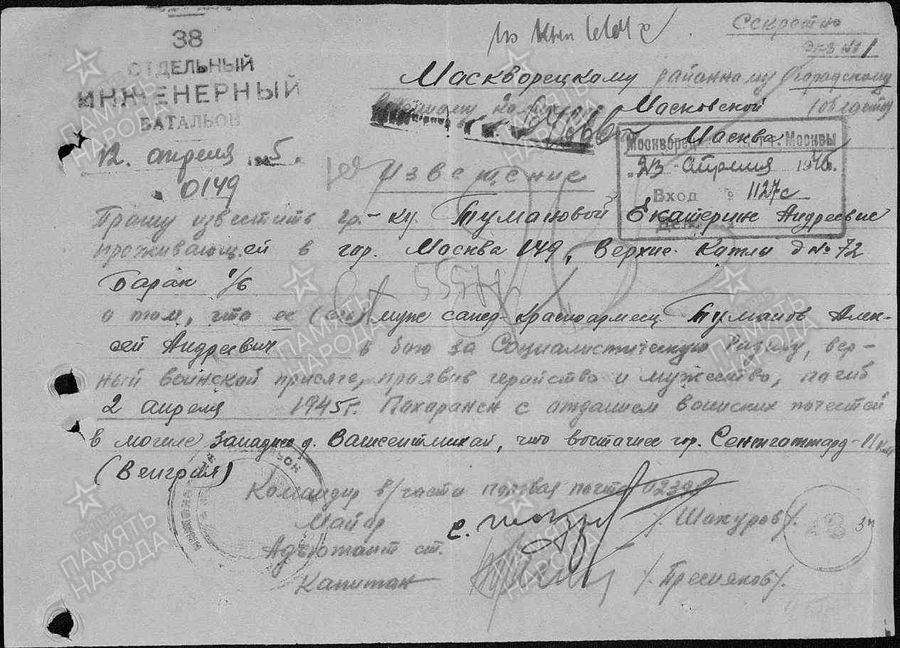 Секретно
экз №1
38
ОТДЕЛЬНЫЙ
ИНЖЕНЕРНЫЙ
БАТАЛЬОН
12. апреля 1945.
№ 0149
Москворецкому районному городскому
Московской (области)
Москва
Москворец г. Москвы
"23" апреля 1946.
Вход № 1127с
Извещение
Прошу известить гр-ку Тумановой Екатерине Андреевне
проживающ.ей в гор. Москва 149, Верхне-Катлы д № 72
Барак 1/6
о том, что ее (его) муж сапер-красноармеец Туманов Алек-
сей Андреевич в бою за Социалистическую Родину, вер-
ный воинской присяге, проявив геройство и мужество, погиб
2 апреля 1945г. Похаранен с отданием воинских почестей
в могиле западнее д. Вашсентмихай, что восточнее гор. Сентготтард-11 км
(Венгрия)
Командир в/части полевая почта 02399
Майор /Шакуров/.
Адъютант ст.
Капитан /Пресняков/.
ПАМЯТЬ
НАРОДА